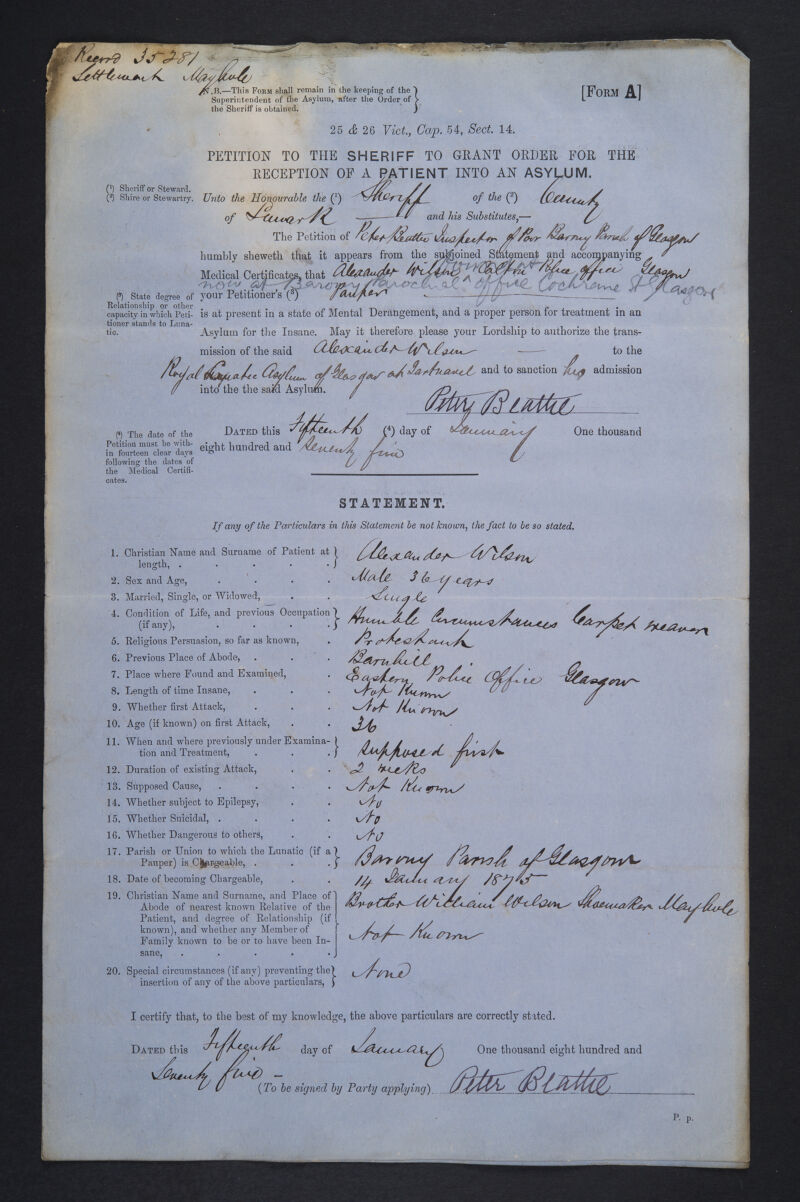 Record 35281
Settlement Maybole
N.B.—This Form shall remain in the keeping of the
Superintendent of the Asylum, after the Order of
the Sheriff is obtained.
[Form A]
25 & 26 Vict., Cap. 54, Sect. 14.
PETITION TO THE SHERIFF TO GRANT ORDER FOR THE
RECEPTION OF A PATIENT INTO AN ASYLUM.
(1) Sheriff or Steward.
(2) Shire or Stewartry.
Unto the Honourable the (1) Sheriff of the (2) County
of Lanark and his Substitutes,—
The Petition of Peter Beattie Inspector of Poor Barony Parish of Glasgow
humbly sheweth that it appears from the subjoined Statement and accompanying
Medical Certificates, that Alexander Wilson Calton Police office Glasgow
now at Barony Parochial office Cochrane St Glasgow
(3) State degree of
Relationship or other
capacity in which Peti-
tioner stands to Luna-
tic.
your Petitioner's (3) Pauper
is at present in a state of Mental Derangement, and a proper person for treatment in an
Asylum for the Insane. May it therefore please your Lordship to authorize the trans-
mission of the said Alexander Wilson — to the
Royal Lunatic Asylum of Glasgow at Gartnavel and to sanction his admission
into the the said Asylum.
Peter Beattie
(4) The date of the
Petition must be with-
in fourteen clear days
following the dates of
the Medical Certifi-
cates.
Dated this Fifteenth (4) day of January One thousand
eight hundred and seventy five
STATEMENT.
If any of the Particulars in this Statement be not known, the fact to be so stated.
1. Christian Name and Surname of Patient at
length, . Alexander Wilson
2. Sex and Age, Male 36 years
3. Married, Single, or Widowed, Single
4. Condition of Life, and previous Occupation
(if any), Humble Circumstances Carpet weaver
5. Religious Persuasion, so far as known, Protestant
6. Previous Place of Abode, Barnhill
7. Place where Found and Examined, Eastern Police Office Glasgow
8. Length of time Insane, Not Known
9. Whether first Attack, Not Known
10. Age (if known) on first Attack, 36
11. When and where previously under Examina-
tion and Treatment, supposed first
12. Duration of existing Attack, 2 weeks
13. Supposed Cause, Not Known
14. Whether subject to Epilepsy, No
15. Whether Suicidal, No
16. Whether Dangerous to others, No
17. Parish or Union to which the Lunatic (if a
Pauper) is Chargeable, Barony Parish of Glasgow
18. Date of becoming Chargeable, 14 January 1875
19. Christian Name and Surname, and Place of
Abode of nearest known Relative of the
Patient, and degree of Relationship (if
known), and whether any Member of
Family known to be or to have been In-
sane, Brother William Wilson Shoemaker Maybole
Not Known
20. Special circumstances (if any) preventing the
insertion of any of the above particulars, None
I certify that, to the best of my knowledge, the above particulars are correctly stated.
Dated this Fifteenth day of January One thousand eight hundred and
Seventy five —
(To be signed by Party applying) Peter Beattie
P. p.